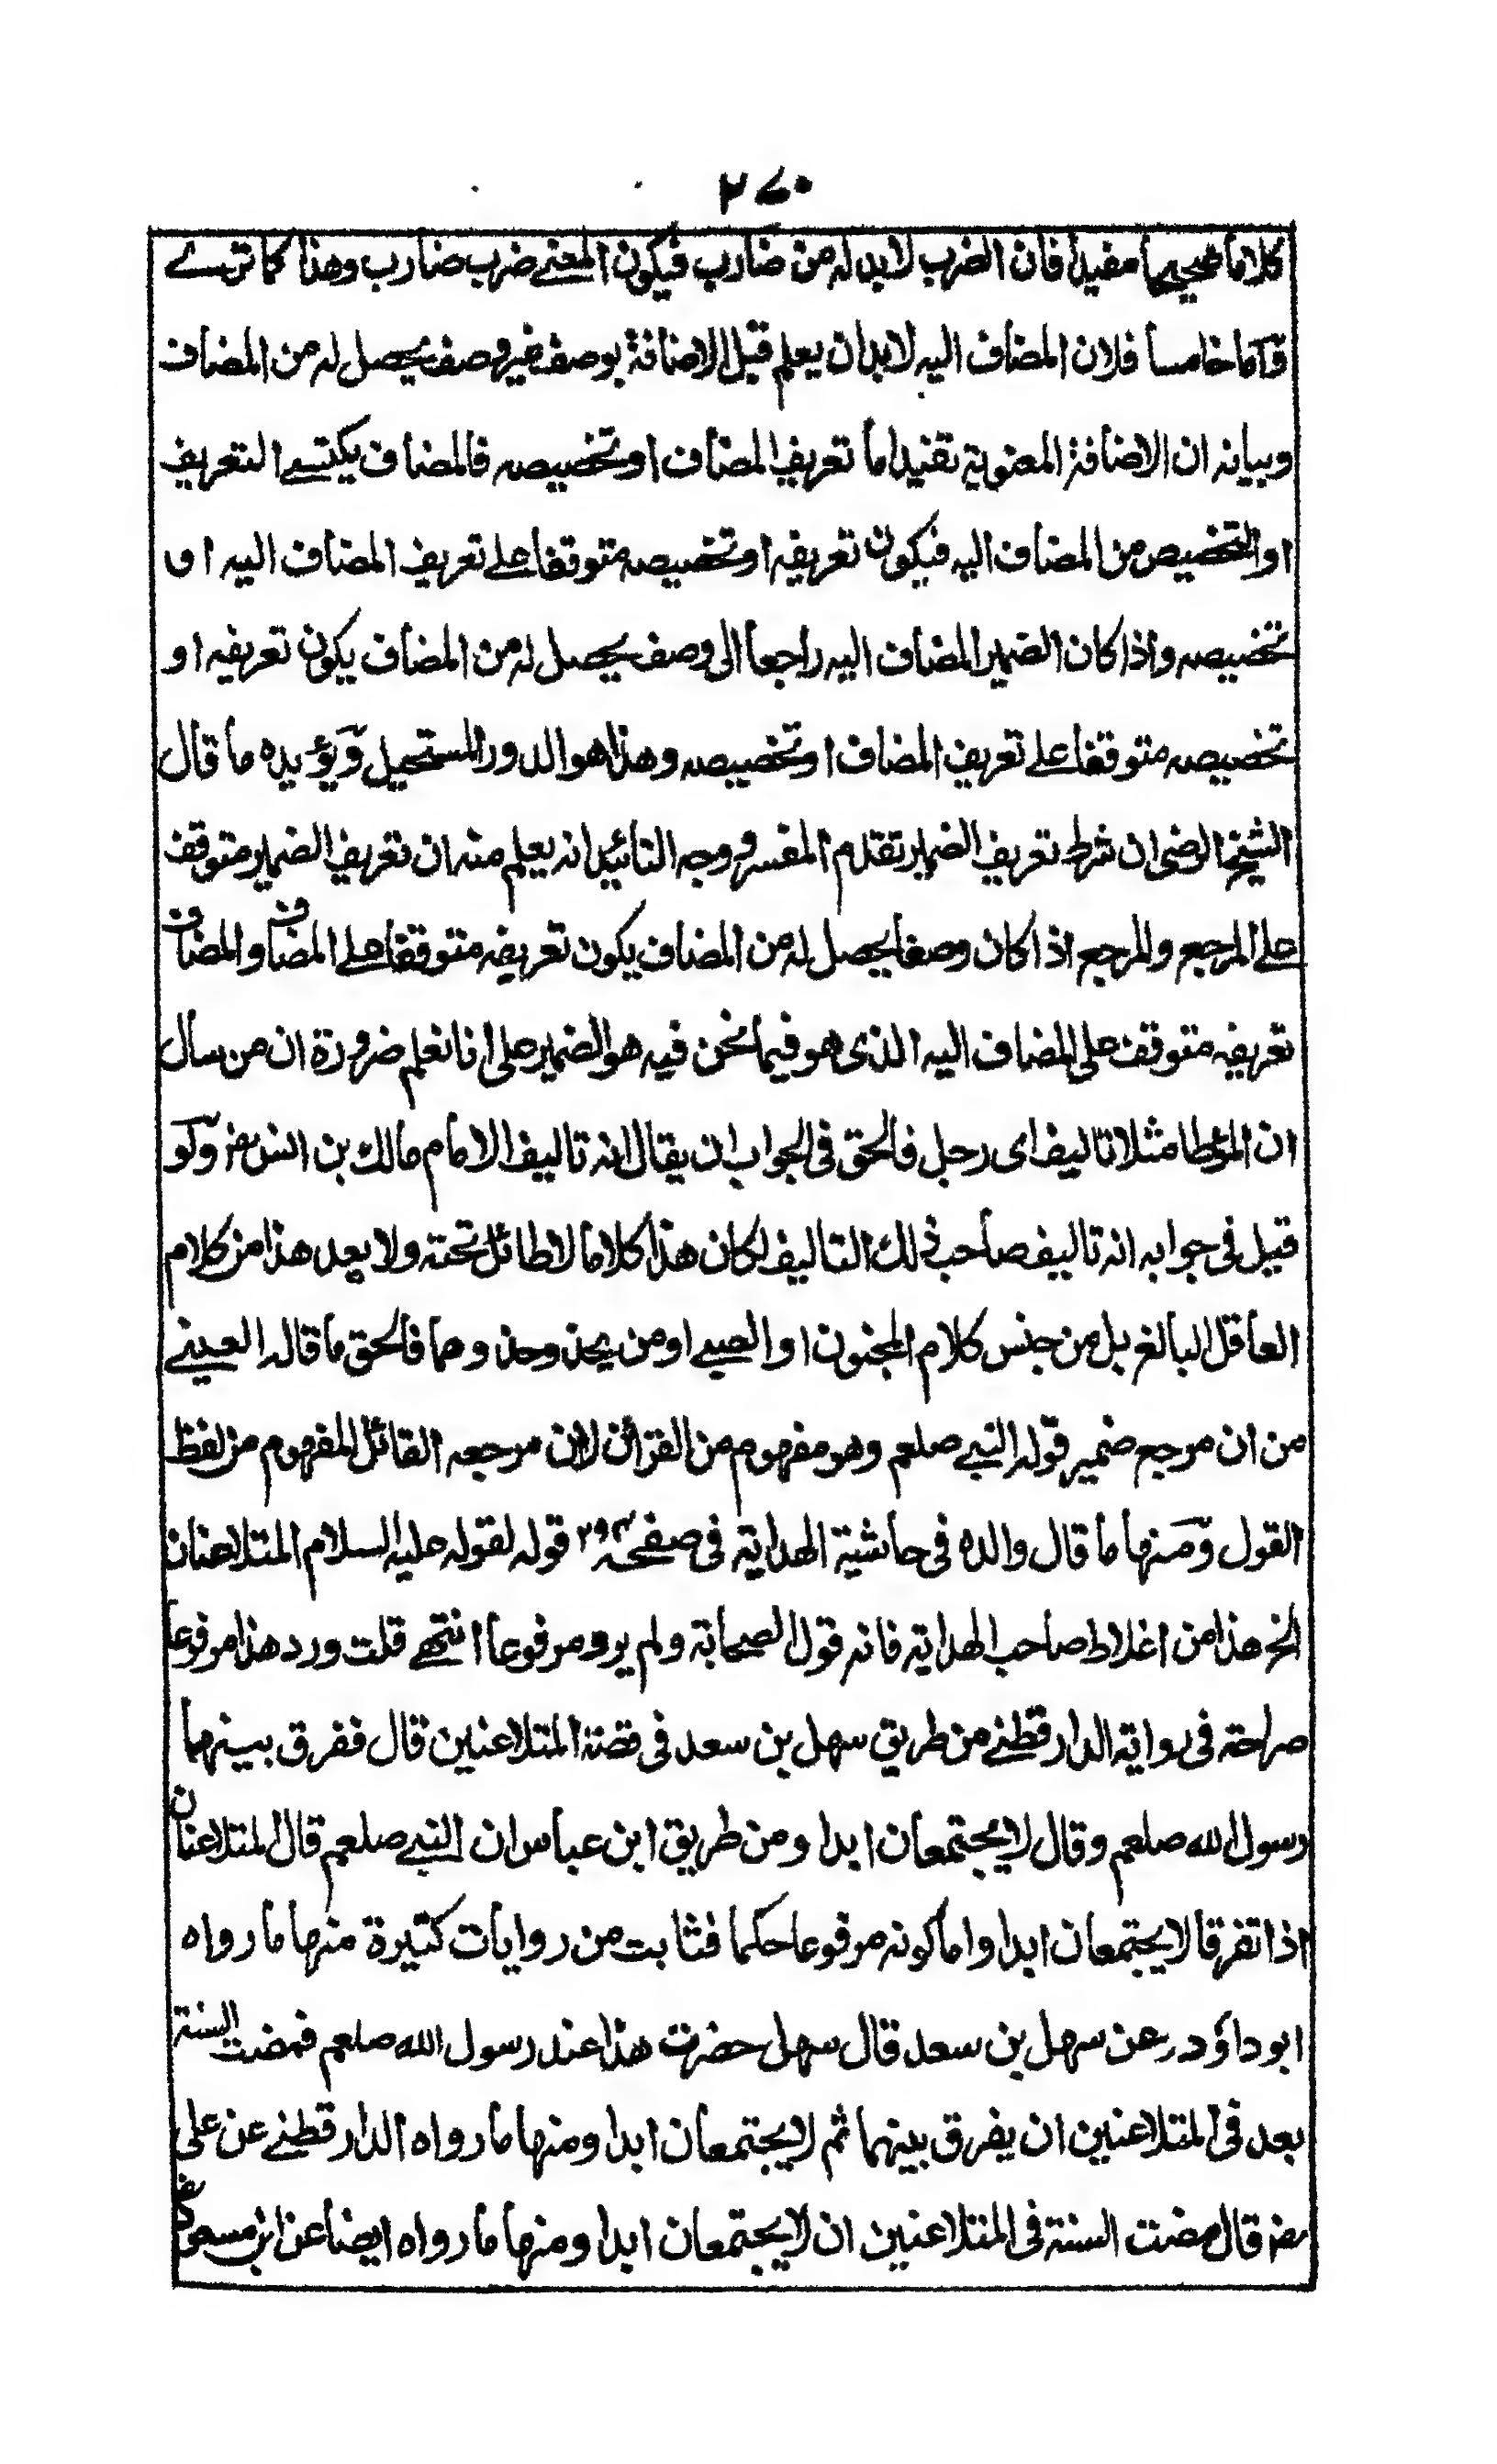 ٢٧٠
كلاما صحيحا مفيدا فان الضرب لابد له من ضارب فيكون المعنى ضرب ضارب وهذا كما ترے
وآما خامسا فلان المضاف اليه لابد ان يعلم قبل الاضافة بوصف غير وصف يحصل له من المضاف
وبيانه ان الاضافة المعنوية تفيد اما تعريف المضاف او تخصيصه فالمضاف يكتسے التعريف
او التخصيص من المضاف اليه فيكون تعريفه او تخصيصه متوقفا على تعريف المضاف اليه او
تخصيصه واذا كان الضمير المضاف اليه راجعا الى وصف يحصل له من المضاف يكون تعريفه او
تخصيصه متوقفا على تعريف المضاف او تخصيصه وهذا هو الدور المستحيل وٓيؤيده ما قال
الشيخ الرضى ان شرط تعريف الضمير تقدم المفسر ووجه التائيد انه يعلم منه ان تعريف الضمير متوقف
على المرجع والمرجع اذا كان وصفا يحصل له من المضاف يكون تعريفه متوقفا على المضاف والمضاف
تعريفه متوقف على المضاف اليه الذى هو فيما نحن فيه هو الضمير على انا نعلم ضرورة ان من سأل
ان المؤطا مثلا تاليف اى رجل فالحق فى الجواب ان يقال انه تاليف الامام مالك بن انس رض وٓلو
قيل فى جوابه انه تاليف صاحب ذلك التاليف لكان هذا كلاما لا طائل تحته ولا يعد هذا من كلام
العاقل البالغ بل من جنس كلام المجنون او الصبے او من يحذ وحذوهما فالحق ما قاله العينے
من ان مرجع ضمير قوله النبے صلعم وهو مفهوم من القرائن لا ان مرجعه القائل المفهوم من لفظ
القول وٓمنها ما قال والده فى حاشية الهداية فى صفحه ٢٩٣ قوله لقوله عليه السلام المتلاعنان
الخ هذا من اغلاط صاحب الهداية فانه قول الصحابة ولم يرو مرفوعا انتهے قلت ورد هذا مرفوعا
صراحة فى رواية الدارقطنے من طريق سهل بن سعد فى قصة المتلاعنين قال ففرق بينهما
رسول الله صلعم وقال لا يجتمعان ابدا ومن طريق ابن عباس ان النبے صلعم قال المتلاعنان
اذا تفرقا لا يجتمعان ابدا واما كونه مرفوعا حكما فثابت من روايات كثيرة منها ما رواه
ابو داؤد عن سهل بن سعد قال سهل حضرت هذا عند رسول الله صلعم فمضت السنة
بعد فى المتلاعنين ان يفرق بينهما ثم لا يجتمعان ابدا ومنها ما رواه الدارقطنے عن على
رض قال مضت السنة فى المتلاعنين ان لا يجتمعان ابدا ومنها ما رواه ايضا عن ابن مسعود